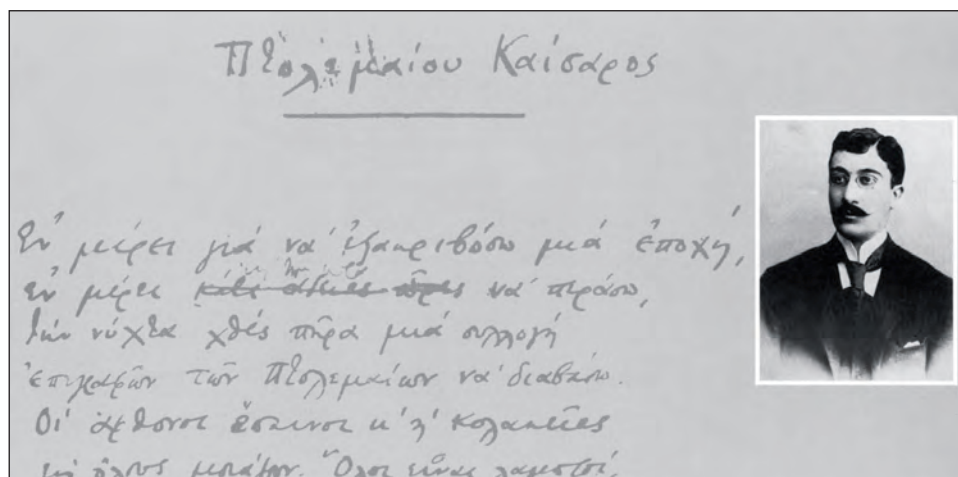 Πτολεμαίου Καίσαρος
Ἐν μέρει γιά νά ἐξακριβώσω μιά ἐποχή,
ἐν μέρει κάτι ἄδειες ὧρες νά περάσω,
τήν νύχτα χθές πῆρα μιά συλλογή
ἐπιγραφῶν τῶν Πτολεμαίων νά διαβάσω.
Οἱ ἄφθονοι ἔπαινοι κ' ἡ κολακεῖες
ὅλους μοιάζουν. Ὅλοι εἶναι λαμπροί,